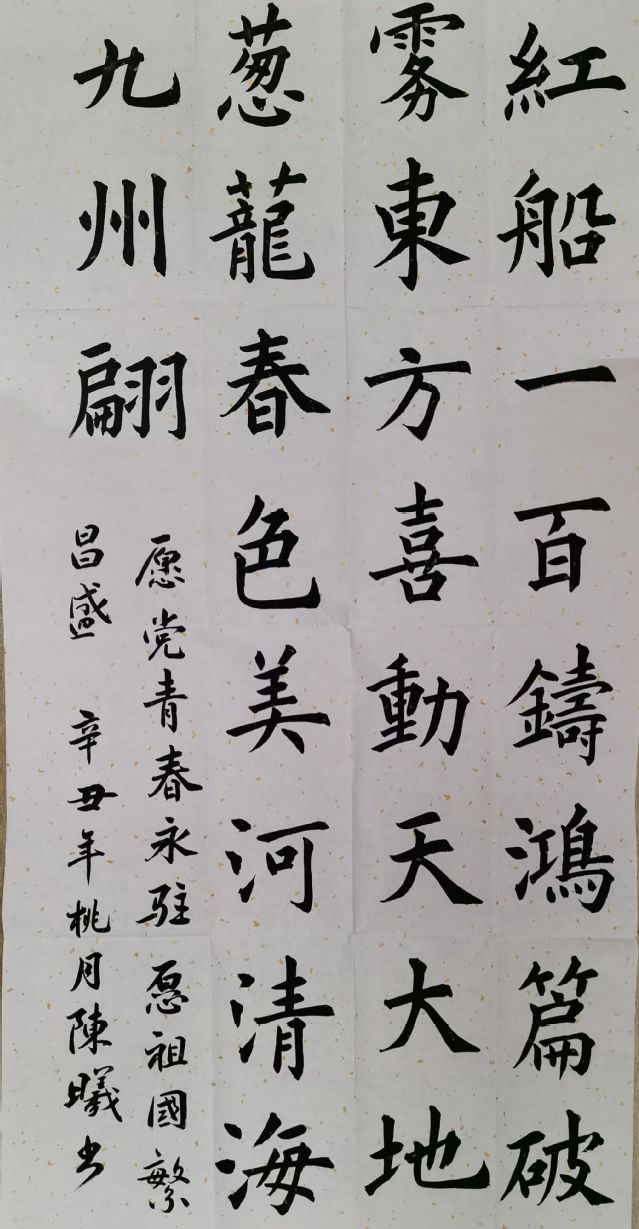 紅船一百鑄鴻篇破
雾東方喜動天大地
葱蘢春色美河清海
九州翩
愿党青春永駐 愿祖國繁
昌盛 辛丑年桃月陳曦书